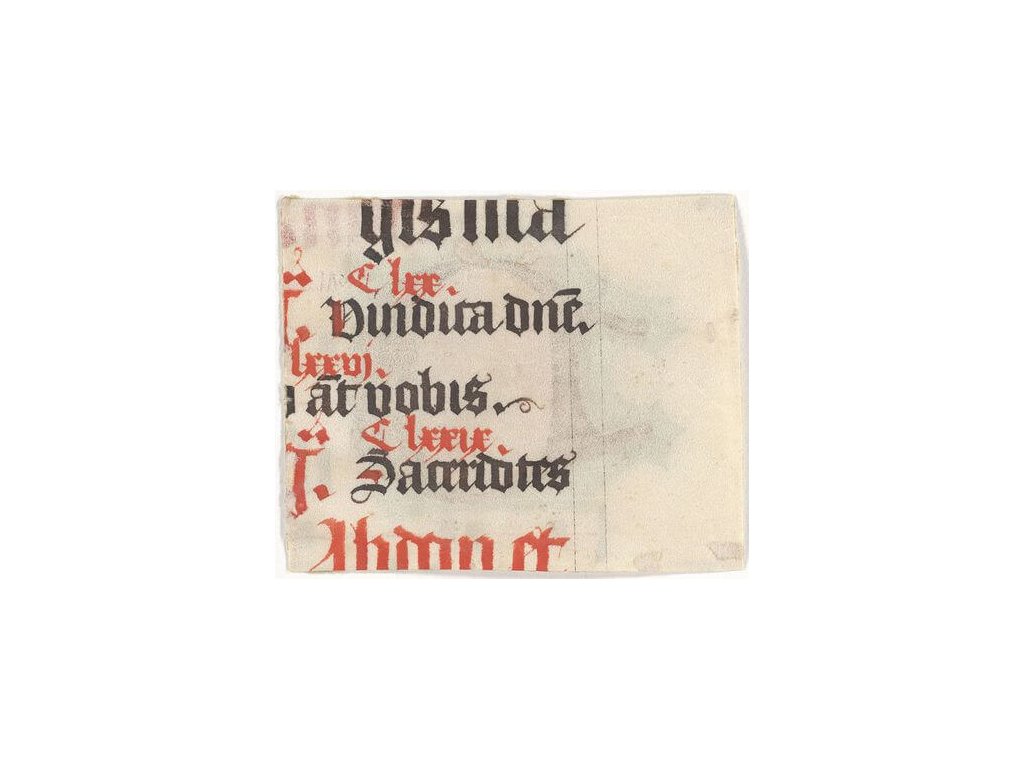 gis ma
C lxx.
Vindica dnē.
lxxvj.
āt vobis.
C lxxix.
Sacerdotes
Abdon et